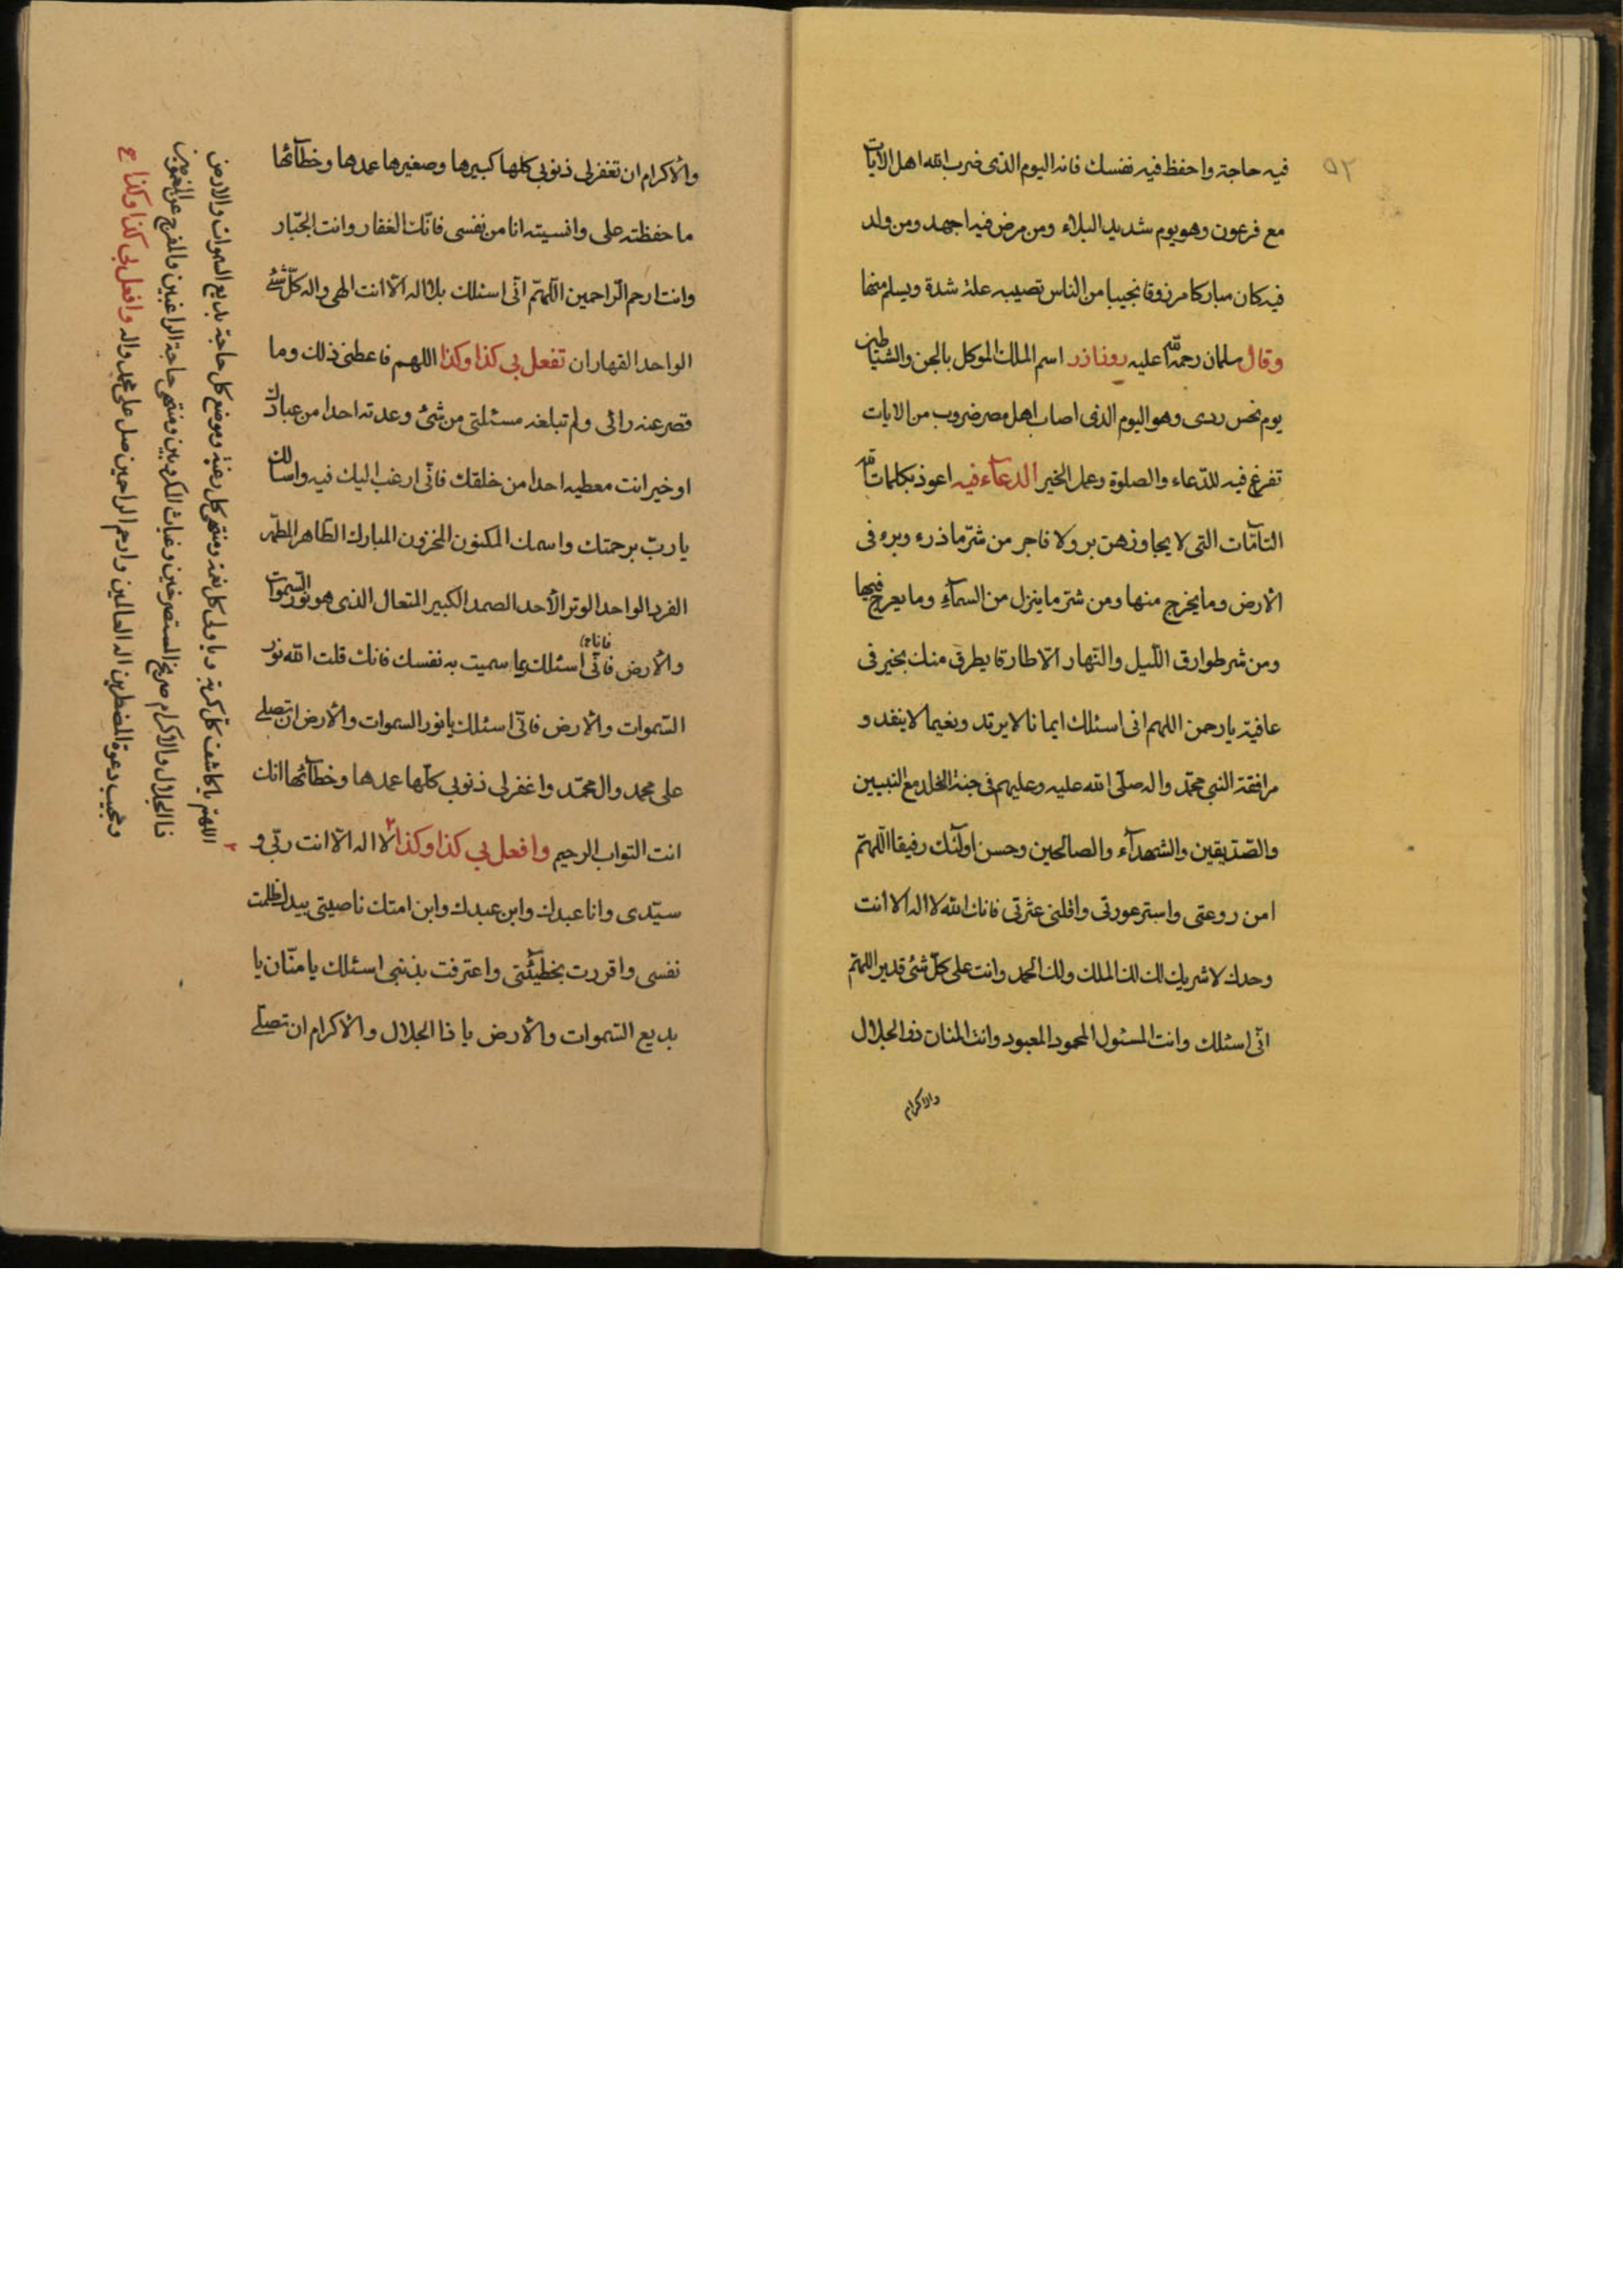 ٥٢
فيه حاجة واحفظ فيه نفسك فانه اليوم الذى ضرب الله اهل الآيات
مع فرعون وهو يوم شديد البلاء ومن مرض فيه اجهد ومن ولد
فيه كان مباركا مرزوقا نجيبا من الناس تصيبه علة شدة ويسلم منها
وقال سلمان رحمة الله عليه روز اذر اسم الملك الموكل بالجن والشياطين
يوم نحس ردى وهو اليوم الذى اصاب اهل مصر ضروب من الايات
تفرغ فيه للدّعاء والصلوة وعمل الخير الدعآء فيه اعوذ بكلمات الله
التآمّات التى لا يجاوزهن بر ولا فاجر من شرّ ما ذرء وبرء فى
الأرض وما يخرج منها ومن شرّ ما ينزل من السمآء وما يعرج فيها
ومن شر طوارق اللّيل والنّهار الّا طارقا يطرق منك بخير فى
عافية يا رحمن اللهم انى اسئلك ايمانا لا يرتد ونعيما لا ينفد و
مرافقة النبي محمّد واله صلّى الله عليه وعليهم فى جنة الخلد مع النبيين
والصّدّيقين والشهدآء والصالحين وحسن اولئك رفيقا اللّهمّ
امن روعتى واستر عورتى واقلنى عثرتى فانك الله لا اله الا انت
وحدك لا شريك لك لك الملك ولك الحمد وانت على كلّ شئ قدير اللهمّ
انّى اسئلك وانت المسئول المحمود المعبود وانت المنان ذو الجلال
والاكرام
والأكرام ان تغفر لى ذنوبى كلها كبيرها وصغيرها عمدها وخطآئها
ما حفظته على وانسيته انا من نفسى فانّك الغفار وانت الجبّار
وانت ارحم الرّاحمين اللّهمّ انّى اسئلك بلا اله الّا انت الهى واله كلّ شئ
الواحد القهار ان تفعل بى كذا وكذا اللهم فاعطنى ذلك وما
قصر عنه رائى ولم تبلغه مسئلتى من شئ وعدته احدا من عبادك
او خير انت معطيه احدا من خلقك فانّى ارغب اليك فيه واسالك
يا ربّ برحمتك واسمك المكنون المخزون المبارك الطّاهر المطهّر
الفرد الواحد الوتر الأحد الصمد الكبير المتعال الذى هو نور السّموات
والأرض فانّى اسئلك بما سميت به نفسك فانك قلت الله نور
فانا
السّموات والأرض فانّى اسئلك يا نور السموات والأرض ان تصلى
على محمد وال محمّد واغفر لى ذنوبى كلّها عمدها وخطآئها انك
انت التواب الرحيم وافعل بى كذا وكذا ٢ لا اله الّا انت ربّى و
سيّدى وانا عبدك وابن عبدك وابن امتك ناصيتى بيدك ظلمت
نفسى واقررت بخطيئتى واعترفت بذنبى اسئلك يا منّان يا
بديع السّموات والأرض يا ذا الجلال والأكرام ان تصلّى
٢ اللهمّ يا كاشف كل كربة ويا ولى كل نعمة ومنتهى كل رغبة وموضع كل حاجة بديع السموات والارض
ذا الجلال والاكرام صريخ المستصرخين وغياث المكروبين ومنتهى حاجة الراغبين والمفرج عن المغمومين
ومجيب دعوة المضطرين اله العالمين وارحم الراحمين صل على محمد واله وافعل بى كذا وكذا ح